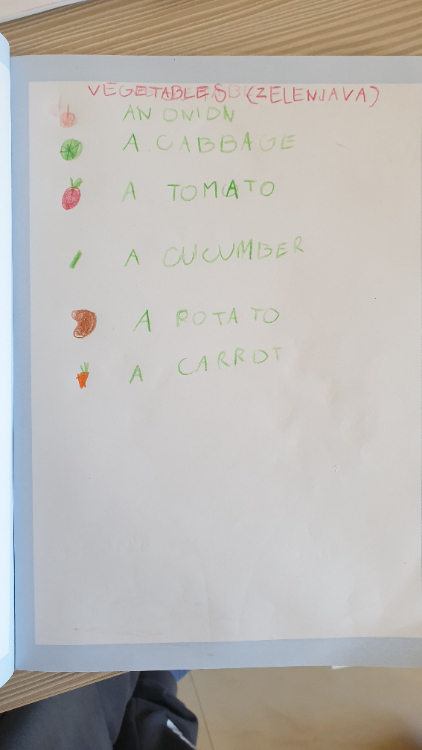 VEGETABLES (ZELENJAVA)
AN ONION
A CABBAGE
A TOMATO
A CUCUMBER
A POTATO
A CARROT